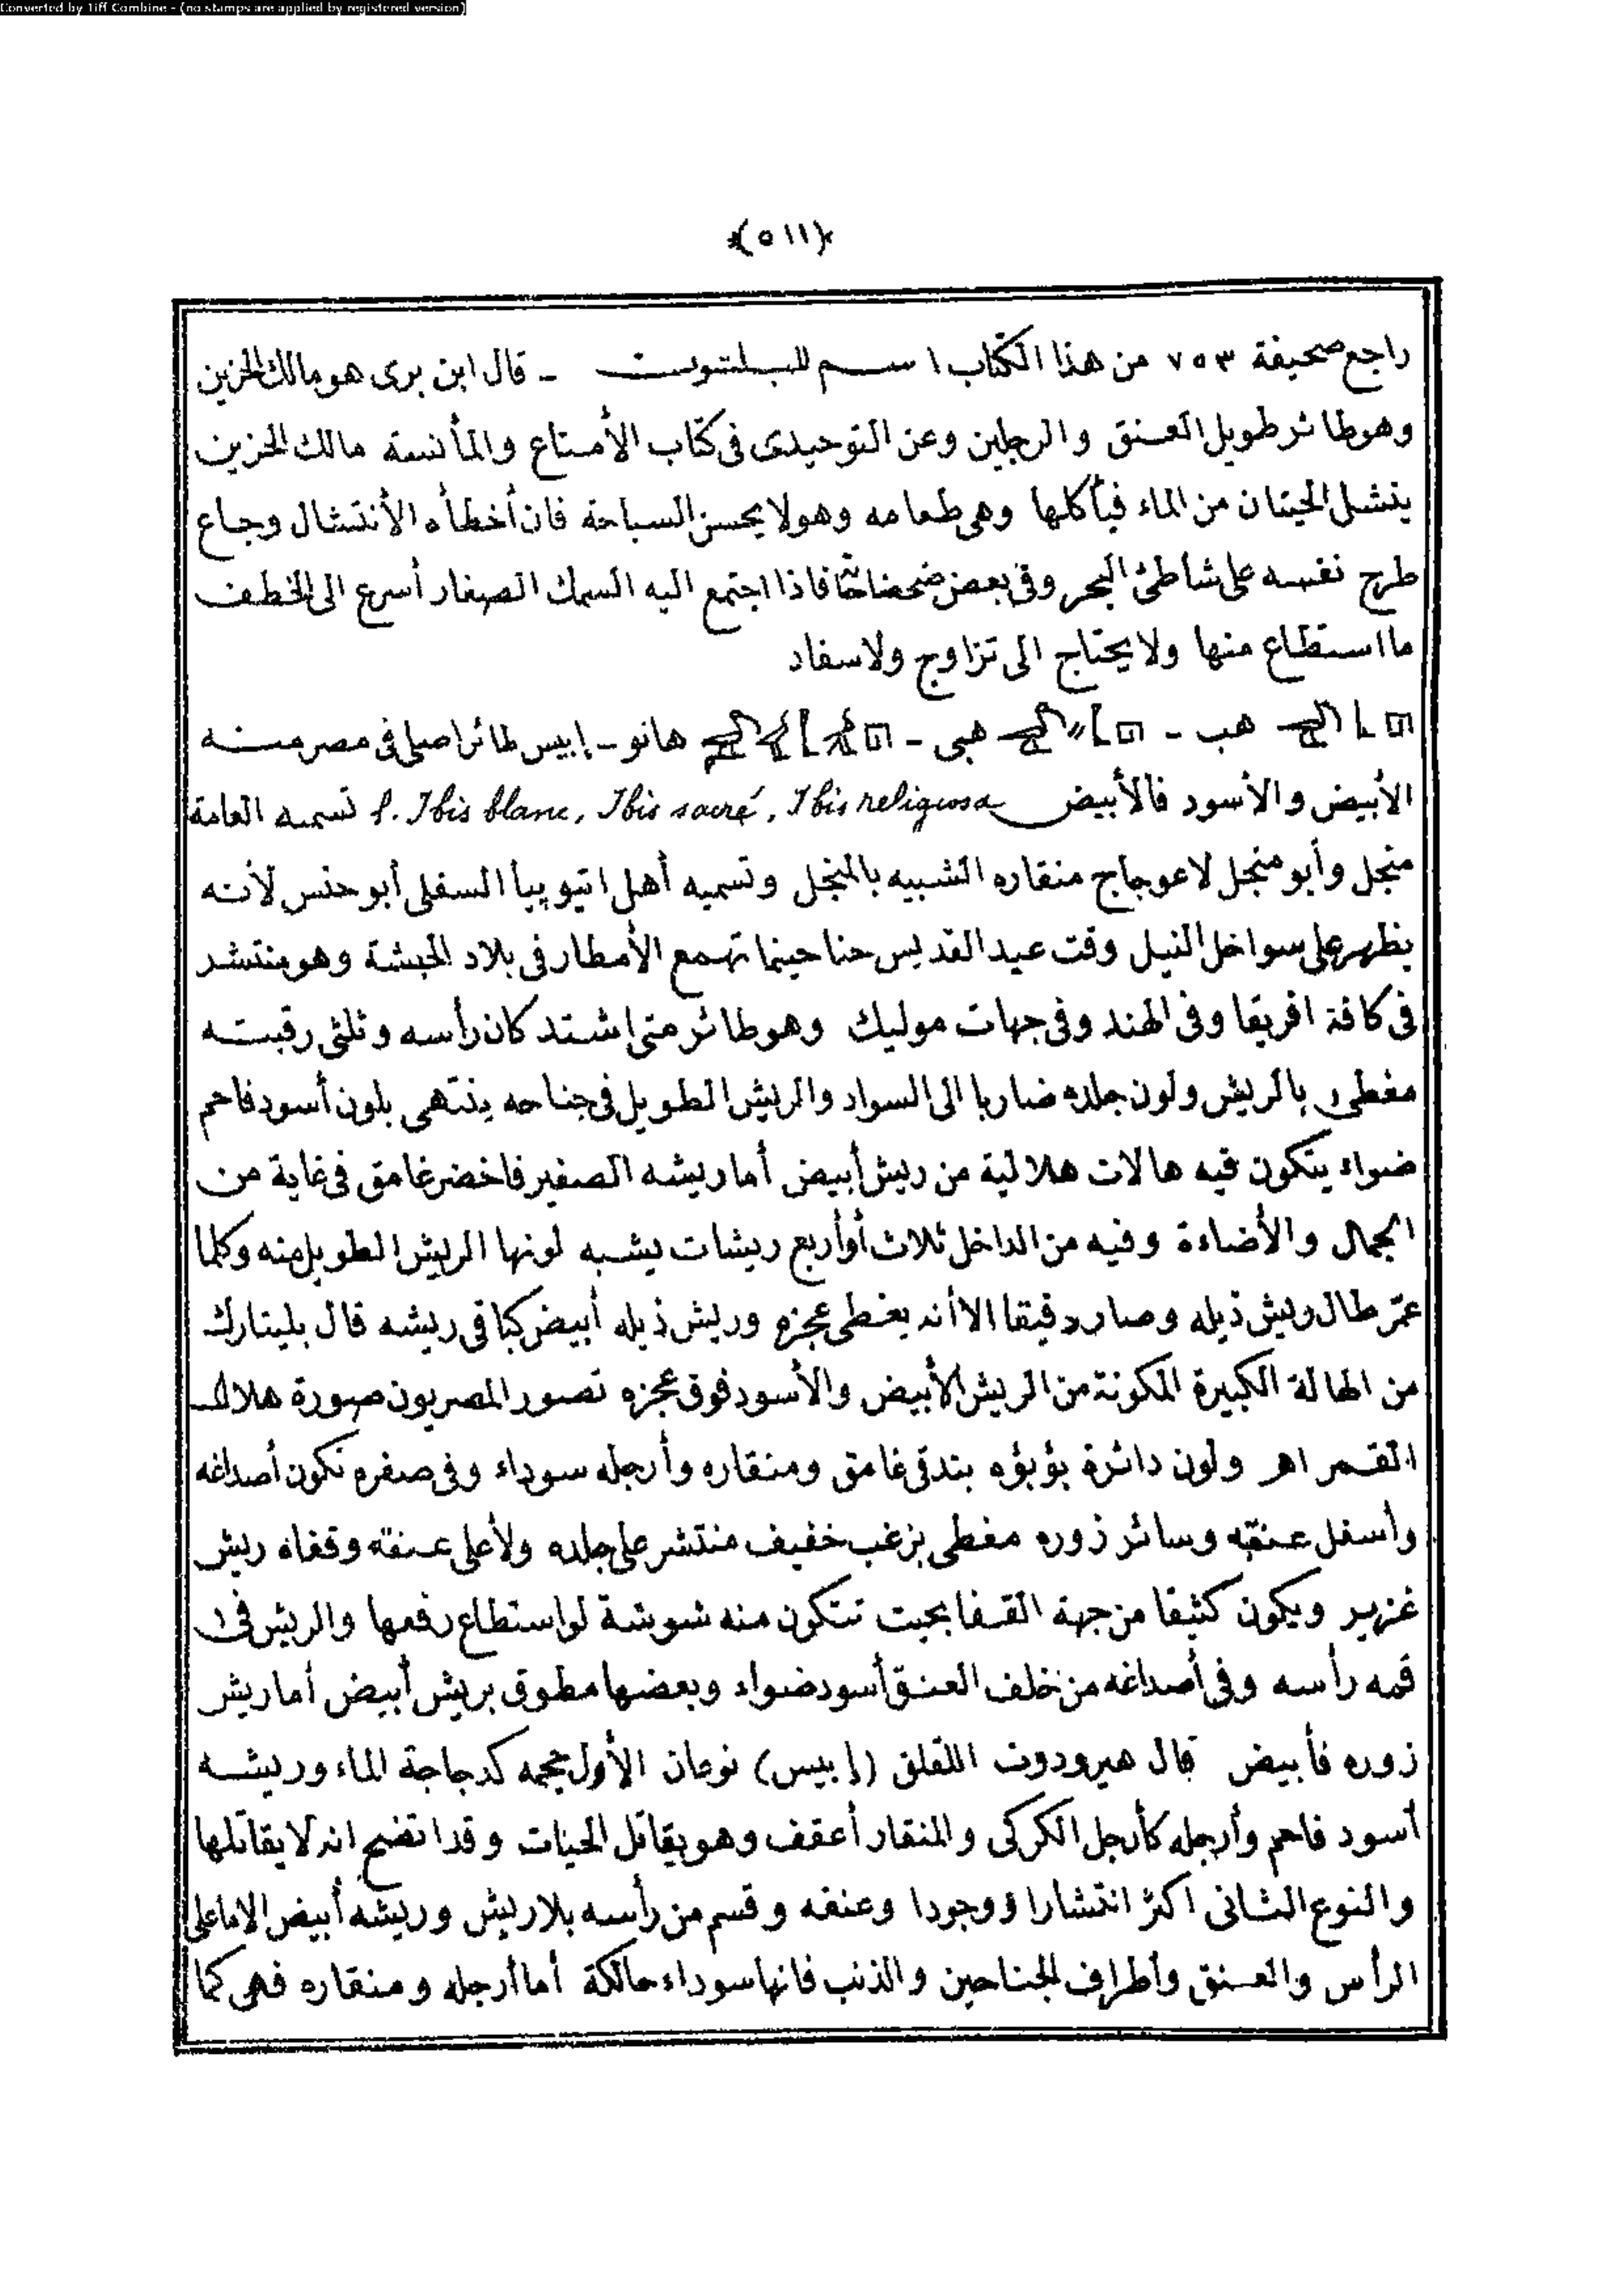 Converted by Tiff Combine - (no stamps are applied by registered version)
﴿٥١١﴾
راجع صحيفة ٧٥٣ من هذا الكتاب اسم للبلشون - قال ابن برى هو مالك الحزين
وهو طائر طويل العنق والرجلين وعن التوحيدى فى كتاب الأمتاع والمأنسة مالك الحزين
ينشل الحيتان من الماء فيأكلها وهى طعامه وهو لا يحسن السباحة فان أخطأه الأنتشال وجاع
طرح نفسه على شاطئ البحر وفى بعض ضحضاخها فاذا اجتمع اليه السمك الصغار أسرع الى الخطف
ما استطاع منها ولا يحتاج الى تزاوج ولا سفاد
هب - هبى - هانو - إبيس طائر اصلى فى مصر منه
الأبيض والأسود فالأبيض f. Ibis blanc, Ibis sacré, Ibis religiosa تسميه العامة
منجل وأبو منجل لاعوجاج منقاره الشبيه بالمنجل وتسميه أهل اتيوبيا السفلى أبو حنس لأنه
يظهر على سواحل النيل وقت عيد القديس حنا حينما تهمع الأمطار فى بلاد الحبشة وهو منتشر
فى كافة افريقا وفى الهند وفى جهات موليك وهو طائر متى اشتد كان رأسه وثلثى رقبته
مغطى بالريش ولون جلده ضاربا الى السواد والريش الطويل فى جناحه ينتهى بلون أسود فاحم
ضواء يتكون فيه هالات هلالية من ريش أبيض أما ريشه الصغير فاخضر غامق فى غاية من
الجمال والأضاءة وفيه من الداخل ثلاث أو أربع ريشات يشبه لونها الريش الطويل منه وكلما
عمّر طال ريش ذيله وصار دقيقا الا أنه يغطى عجزه وريش ذيله أبيض كباقى ريشه قال بليتارك
من الهالة الكبيرة المكونة من الريش الأبيض والأسود فوق عجزه تصور المصريون صورة هلال
القمر اهـ ولون دائرة بؤبؤه بندقى غامق ومنقاره وأرجله سوداء وفى صغره تكون أصداغه
وأسفل عنقه وسائر زوره مغطى بزغب خفيف منتشر على جلده ولأعلى عنقه وقفاه ريش
غزير ويكون كثيفا من جهة القفا بحيث تتكون منه شوشة لو استطاع رفعها والريش فى
قمه رأسه وفى أصداغه من خلف العنق أسود ضواء وبعضها مطوق بريش أبيض أما ريش
زوره فأبيض قال هيرودوت اللقلق (إبيس) نوعان الأول حجمه كدجاجة الماء وريشه
أسود فاحم وأرجله كأرجل الكركى والمنقار أعقف وهو يقاتل الحيات وقد اتضح انه لا يقاتلها
والنوع الثانى اكثر انتشارا ووجودا وعنقه وقسم من رأسه بلا ريش وريشه أبيض الا ما على
الرأس والعنق وأطراف الجناحين والذنب فانها سوداء حالكة أما أرجله ومنقاره فهى كما